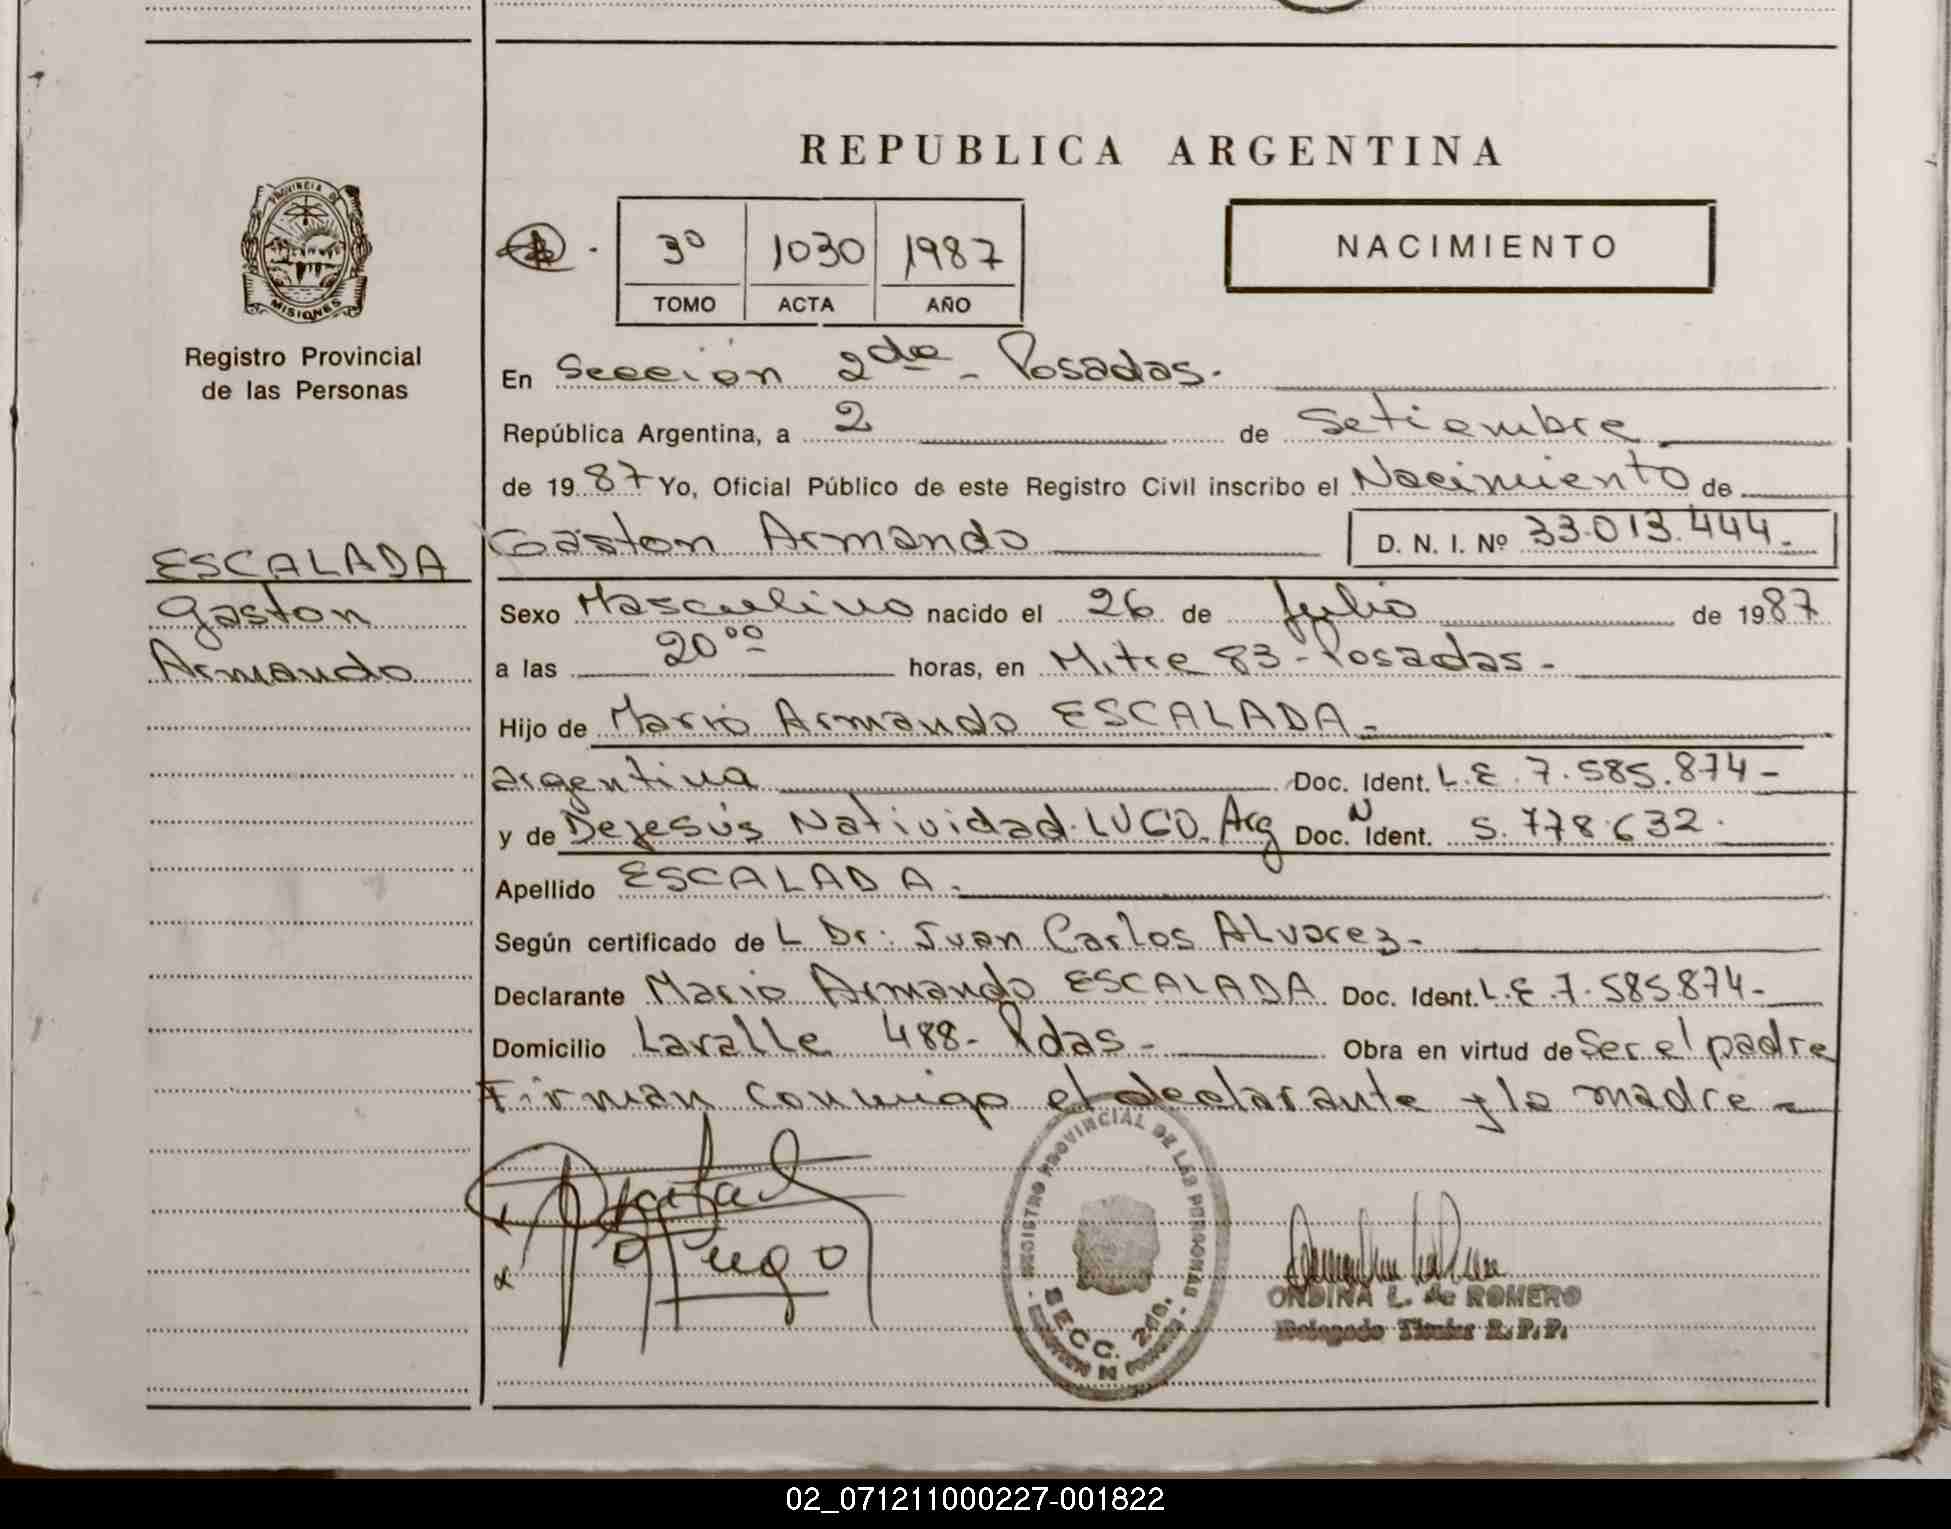 REPUBLICA ARGENTINA
PROVINCIA DE
MISIONES
Registro Provincial
de las Personas
3º 1030 1987
TOMO ACTA AÑO
NACIMIENTO
En Sección 2da - Posadas.
República Argentina, a 2 de Setiembre
de 1987 Yo, Oficial Público de este Registro Civil inscribo el Nacimiento de
Gaston Armando D. N. I. Nº 33.013.444-
ESCALADA
Gaston
Armando
Sexo Masculino nacido el 26 de Julio de 1987
a las 20 00 horas, en Mitre 83-Posadas-
Hijo de Mario Armando ESCALADA-
argentina Doc. Ident. L.E. 7.585.874-
y de Dejesús Natividad LUGO. Arg Doc. N Ident. 5.778.632.
Apellido ESCALADA.
Según certificado de L Dr: Juan Carlos ALvarez-
Declarante Mario Armando ESCALADA Doc. Ident. L.E.7.585.874-
Domicilio Lavalle 488- Pdas- Obra en virtud de Ser el padre
Firman conmigo el declarante y la madre-
Lugo
REGISTRO PROVINCIAL DE LAS PERSONAS
SECC. 2da.
ONDINA L. de ROMERO
Delegado Titular R.P.P.
02_071211000227-001822